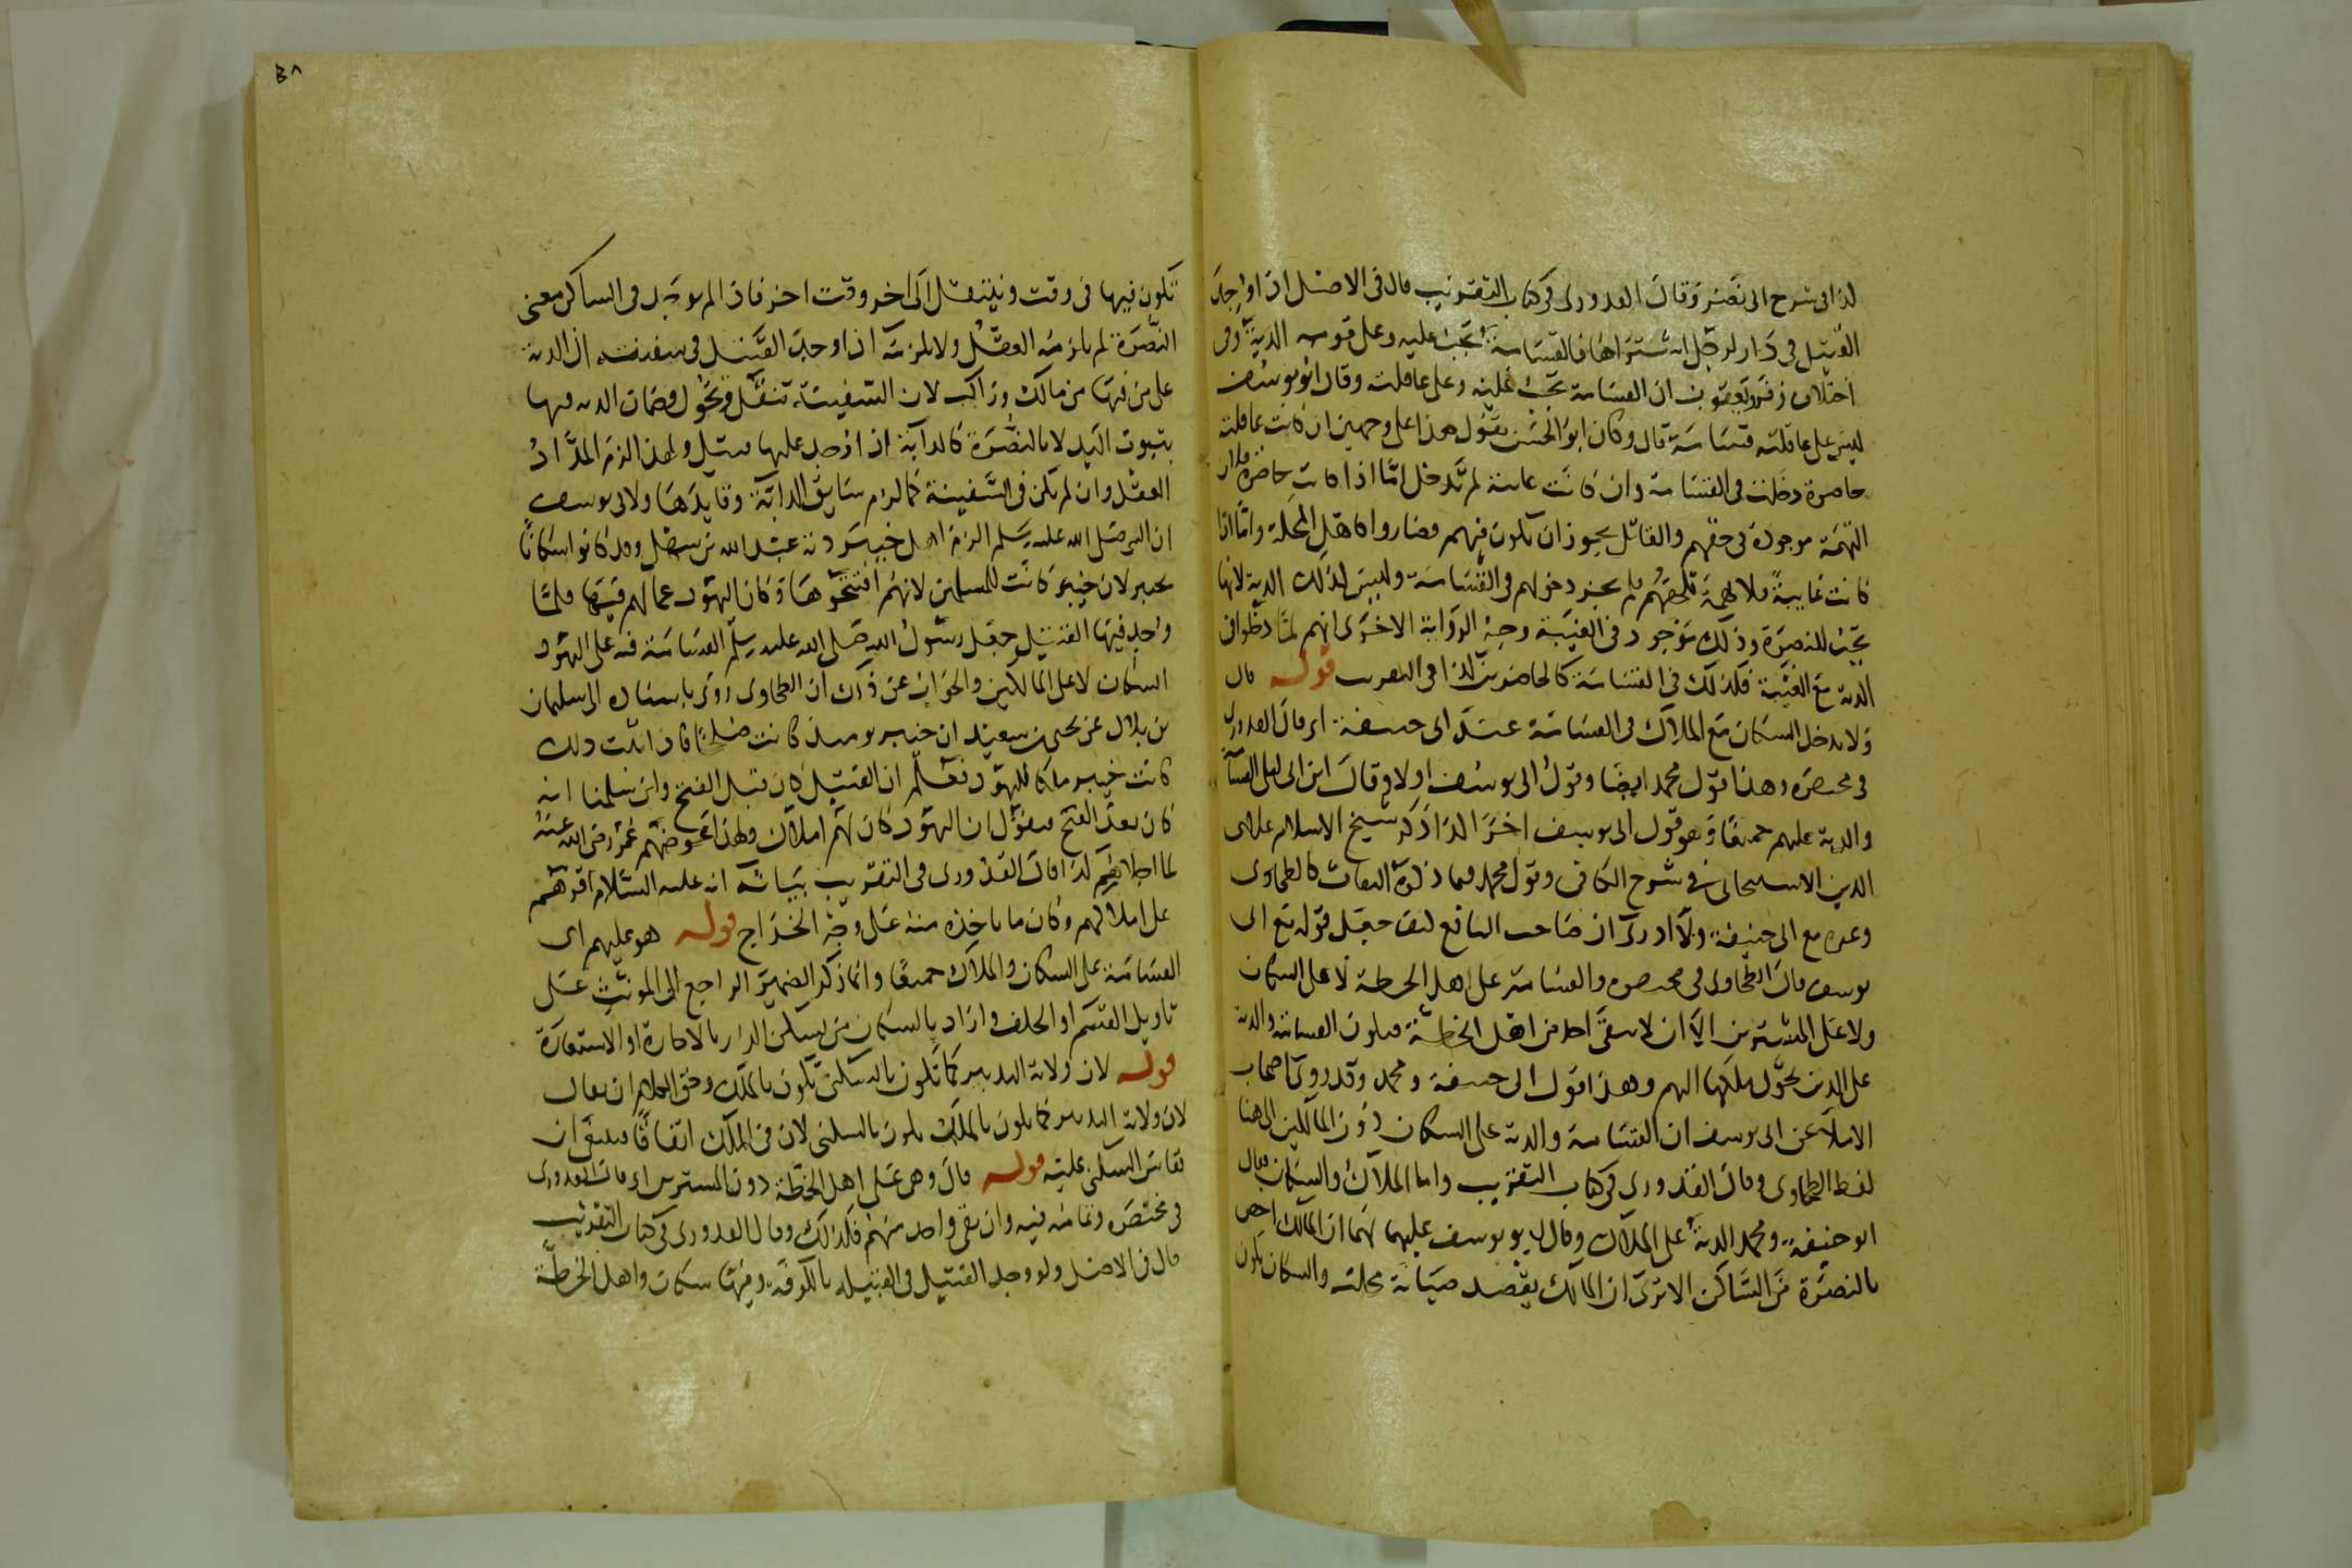 كذا في شرح ابي نصر وقال القدوري في كتاب التقريب قال في الاصل اذا وجد
القتيل في دار لرجل اشتراها فالقسامة تجب عليه وعلى قومه الدية وفي
اختلاف زفر ويعقوب ان القسامة تجب عليه وعلى عاقلته وقال ابو يوسف
ليس على عاقلته قسامة قال وكان ابو الحسن يقول هذا على وجهين ان كانت عاقلته
حاضرة دخلت في القسامة وان كانت غايبة لم تدخل امّا اذا كانت حاضرة فلان
التهمة موجودة في حقهم والقاتل يجوز ان يكون فيهم فصاروا كاهل المحلة وامّا اذا
كانت غايبة فلا تهمة تلحقهم فلم يجز دخولهم في القسامة وليس كذلك الدية لانها
تجب للنصرة وذلك موجود في الغيبة وجه الرواية الاخرى انهم لمّا دخلوا في
الدية مع الغيبة فكذلك في القسامة كالحاضرين كذا في التقريب قوله قال
ولا يدخل السكان مع الملاك في القسامة عند ابي حنيفة اي قال القدوري
في مختصره وهذا قول محمد ايضا وقول ابي يوسف اولا وقال ابن ابي ليلى القسامة
والدية عليهم جميعا وهو قول ابي يوسف اخرا كذا ذكر شيخ الاسلام علاء
الدين الاسبيجابي في شرح الكافي وقول محمد فيما ذكره الثقات كالطحاوي
وغيره مع ابي حنيفة ولا ادري ان صاحب النافع كيف جعل قوله مع ابي
يوسف قال الطحاوي في مختصره والقسامة على اهل الخطة لا على السكان
ولا على المشترين الا ان لا يبقى احد من اهل الخطة فيكون القسامة والدية
على الذين تحول ملكها اليهم وهذا قول ابي حنيفة ومحمد وقد روى اصحاب
الاملاء عن ابي يوسف ان القسامة والدية على السكان دون المالكين الى هنا
لفظ الطحاوي وقال القدوري في كتاب التقريب واما الملاك والسكان فقال
ابو حنيفة ومحمد الدية على الملاك وقال ابو يوسف عليهما لهما ان المالك اخص
بالنصرة من الساكن الا ترى ان المالك يقصد صيانة محلته والسكان يكون
٣٨
تكون فيها في وقت وينتقل الى اخر وقت اخر فاذا لم يوجد في الساكن معنى
النصرة لم يلزمه العقل ولا يلزم انه اذا وجد القتيل في سفينة ان الدية
على من فيها من مالك وراكب لان السفينة تنقل وتحول وضمان الدية فيها
بثبوت اليد لا بالنصرة كالدابة اذا وجد عليها قتيل ولهذا الزم الملاك
العقل وان لم تكن في السفينة كما لزم سايق الدابة وقايدها ولابي يوسف
ان النبي صلى الله عليه وسلم الزم اهل خيبر دية عبد الله بن سهل وقد كانوا سكانا
بخيبر لان خيبر كانت للمسلمين لانهم افتتحوها وكان اليهود عمالهم فيها فلما
وجد فيها القتيل جعل رسول الله صلى الله عليه وسلم القسامة فيه على اليهود
السكان لا على المالكين والجواب عن ذلك ان الطحاوي روى باسناده الى سليمان
بن بلال عن يحيى بن سعيد ان خيبر يومئذ كانت صلحا فاذا ثبت ذلك
كانت خيبر ملكا لليهود فعلم ان القتيل كان قبل الفتح وان سلمنا انه
كان بعد الفتح فنقول ان اليهود كان لهم املاك ولهذا عوضهم عمر رضي الله عنه
لما اجلاهم كذا قال القدوري في التقريب بيانه انه عليه السلام اقرهم
على املاكهم وكان ما ياخذه منه على وجه الخراج قوله هو عليهم اي
القسامة على السكان والملاك جميعا وانما ذكر الضمير الراجع الى المونث على
تاويل القسم او الحلف واراد بالسكان من يسكن الدار بالاجارة او الاستعارة
قوله لان ولاية التدبير كما تكون بالسكنى تكون بالملك وحق الكلام ان يقال
لان ولاية التدبير كما يكون بالملك يكون بالسكنى لان في الملك اتفاقا فينبغي ان
يقاس السكنى عليه قوله قال وهي على اهل الخطة دون المشترين اي قال القدوري
في مختصره وتمامه فيه وان بقي واحد منهم فكذلك وقال القدوري في كتاب التقريب
قال في الاصل ولو وجد القتيل في القبيلة بالكوفة وفيها سكان واهل الخطة